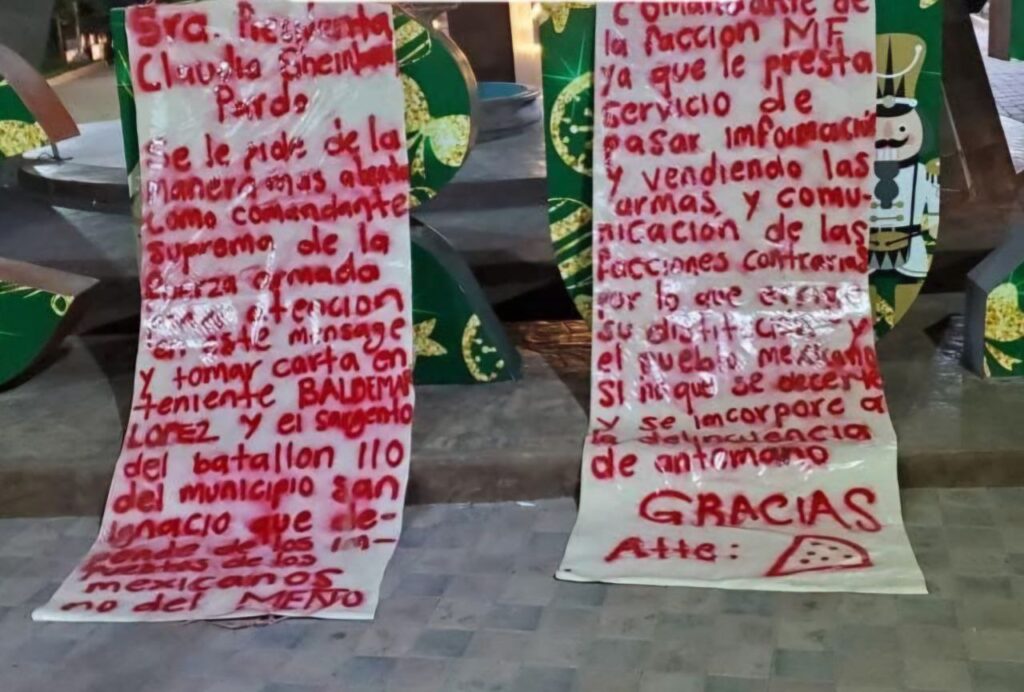 Sra. Presidenta
Claudia Sheinbaum
Pardo
Se le pide de la
manera mas atenta
como comandante
suprema de la
fuerza armada
atencion
en este mensage
y tomar carta en
teniente BALDEMAR
LOPEZ y el sargento
del batallon 110
del municipio san
ignacio que de-
pende de los im-
puestos de los
mexicanos
no del MENTO
comandante de
la faccion MF
ya que le presta
servicio de
pasar imformación
y vendiendo las
armas, y comu-
nicación de las
facciones contrarias
por lo que
su y
el pueblo mexicano
si no que se decerte
y se imcorpore a
la delincuencia
de antomano
GRACIAS
Atte: